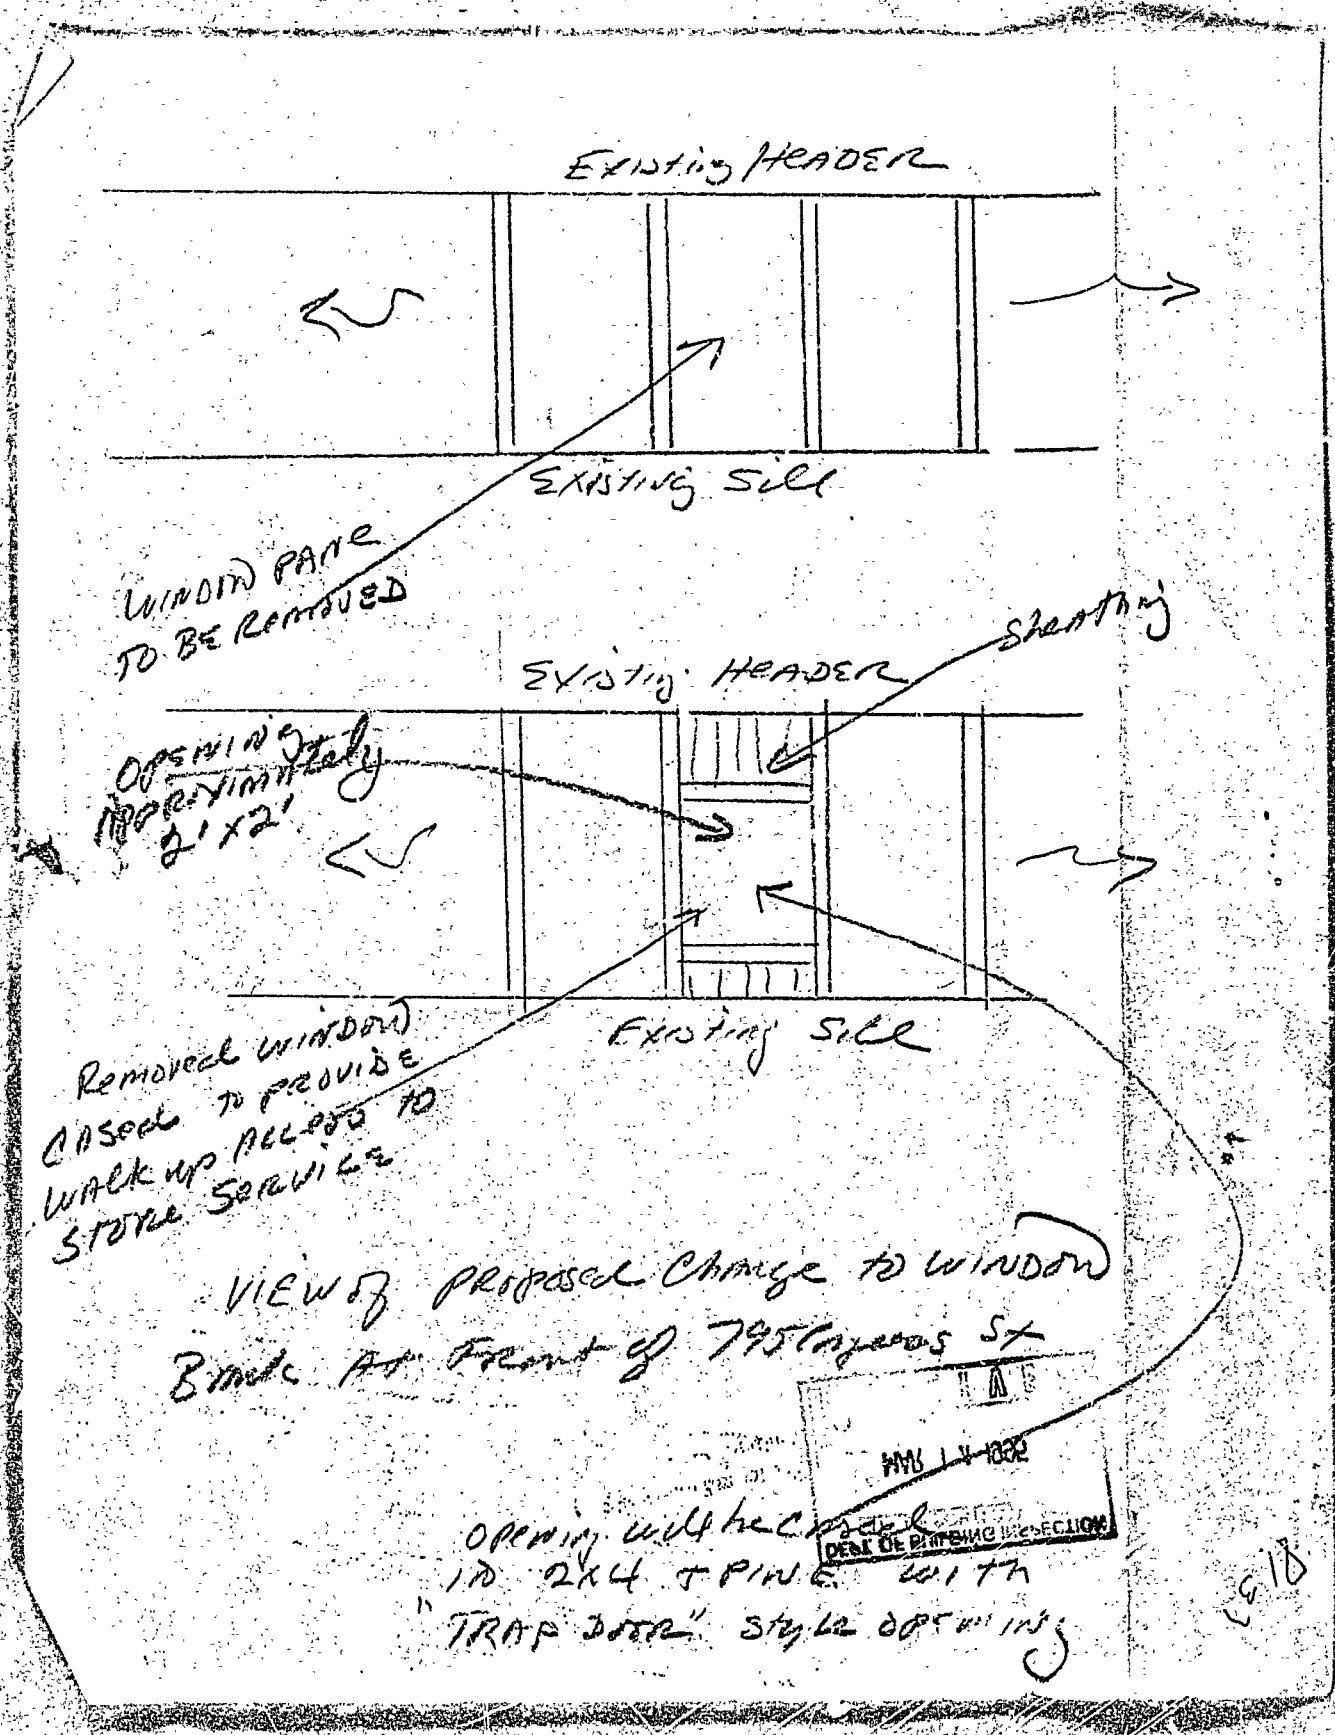 Existing HEADER
Existing Sill
WINDOW PANE
TO BE REMOVED
Sheathing
Existing HEADER
OPENING
APPROXIMATELY
2' x 2'
Existing Sill
Removed WINDOW
CASED TO PROVIDE
WALK up Access to
STORE SERVICE
VIEW of PROPOSED Change to WINDOW
Bank At Front of 795 Congress St
MAR 1 1992
DEPT. OF BUILDING INSPECTION
Opening will be Cased
IN 2x4 + PINE with
"TRAP DOOR" Style OPENING